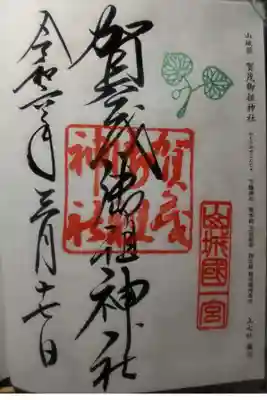 山城国 賀茂御祖神社
山城國一宮
賀茂御祖神社
賀茂御祖神社
令和六年三月十七日